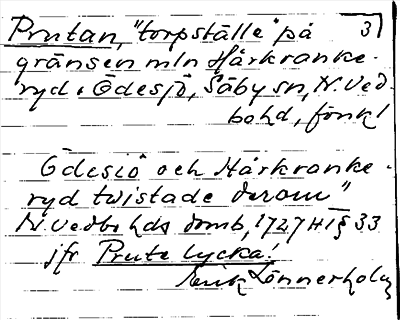 Prutan, "torpställe" på 31
gränsen mln Hårkranke-
ryd o Ödesjö, Säby sn, N. Ved-
bohd, Jönk l
Ödesiö och Hårkranke-
ryd twistade derom"
N. Vedbo hds domb, 1727 HT § 33
jfr Prute lycka!
Erik Lönnerholm